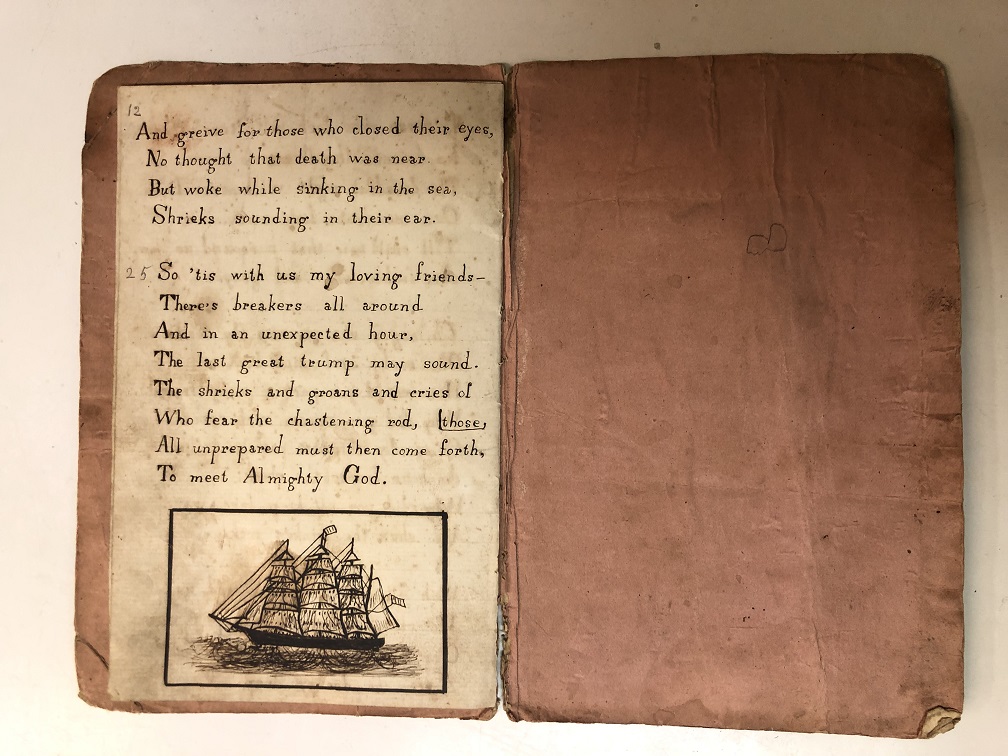 12
And greive for those who closed their eyes,
No thought that death was near.
But woke while sinking in the sea,
Shrieks sounding in their ear.
25 So 'tis with us my loving friends—
There's breakers all around
And in an unexpected hour,
The last great trump may sound.
The shrieks and groans and cries of
Who fear the chastening rod, [those,
All unprepared must then come forth,
To meet Almighty God.